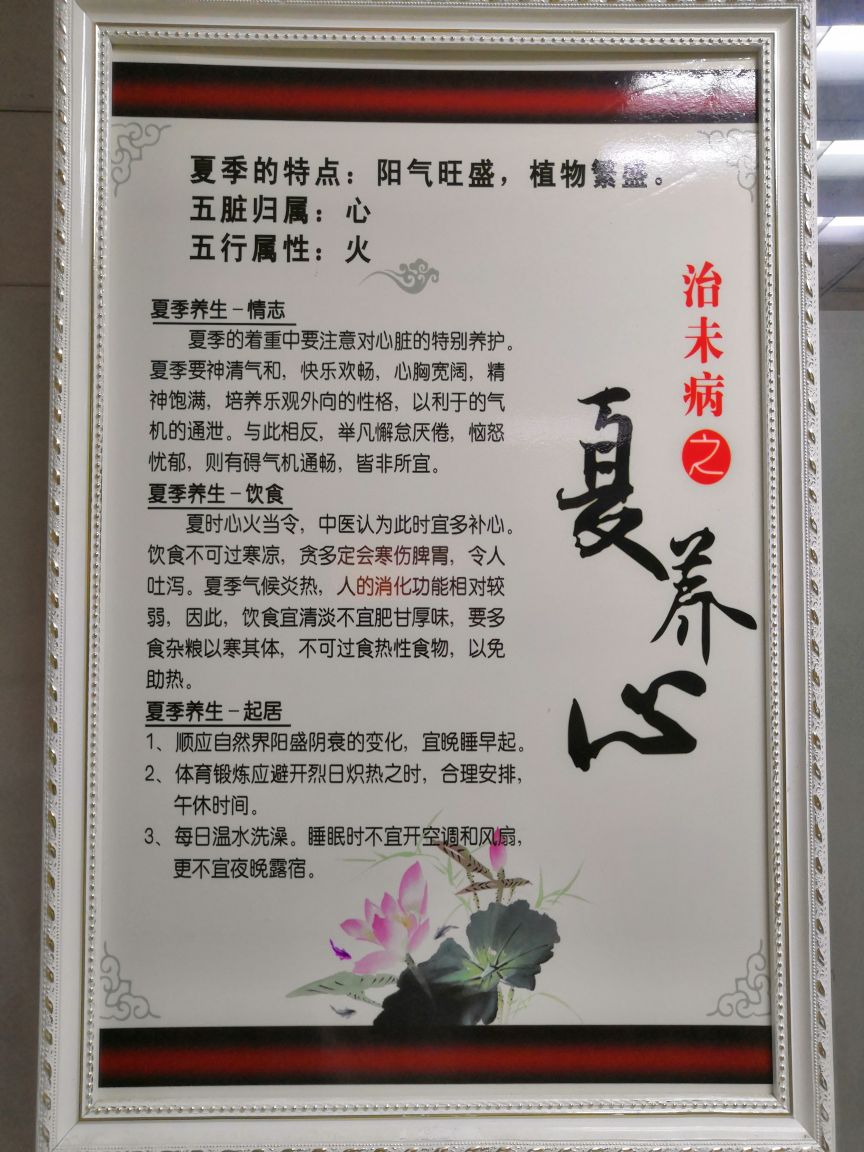 夏季的特点：阳气旺盛，植物繁盛。
五脏归属：心
五行属性：火
治未病之
夏养心
夏季养生－情志
夏季的着重中要注意对心脏的特别养护。
夏季要神清气和，快乐欢畅，心胸宽阔，精
神饱满，培养乐观外向的性格，以利于的气
机的通泄。与此相反，举凡懈怠厌倦，恼怒
忧郁，则有碍气机通畅，皆非所宜。
夏季养生－饮食
夏时心火当令，中医认为此时宜多补心。
饮食不可过寒凉，贪多定会寒伤脾胃，令人
吐泻。夏季气候炎热，人的消化功能相对较
弱，因此，饮食宜清淡不宜肥甘厚味，要多
食杂粮以寒其体，不可过食热性食物，以免
助热。
夏季养生－起居
1、顺应自然界阳盛阴衰的变化，宜晚睡早起。
2、体育锻炼应避开烈日炽热之时，合理安排，
午休时间。
3、每日温水洗澡。睡眠时不宜开空调和风扇，
更不宜夜晚露宿。